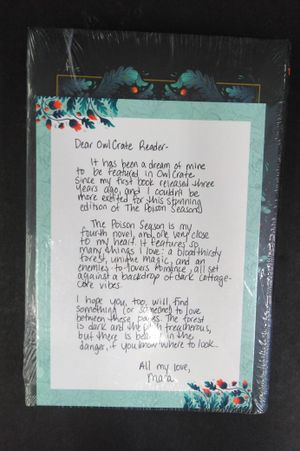 Dear OwlCrate Reader-
It has been a dream of mine
to be featured in OwlCrate
since my first book released three
years ago, and I couldn't be
more excited for this stunning
edition of The Poison Season!
The Poison Season is my
fourth novel, and one very close
to my heart. It features so
many things I love: a bloodthirsty
forest, unique magic, and an
enemies-to-lovers romance, all set
against a backdrop of dark cottage-
core vibes.
I hope you, too, will find
something (or someone) to love
between these pages. The forest
is dark and the path treacherous,
but there is beauty in the
danger, if you know where to look...
All my love,
Mara